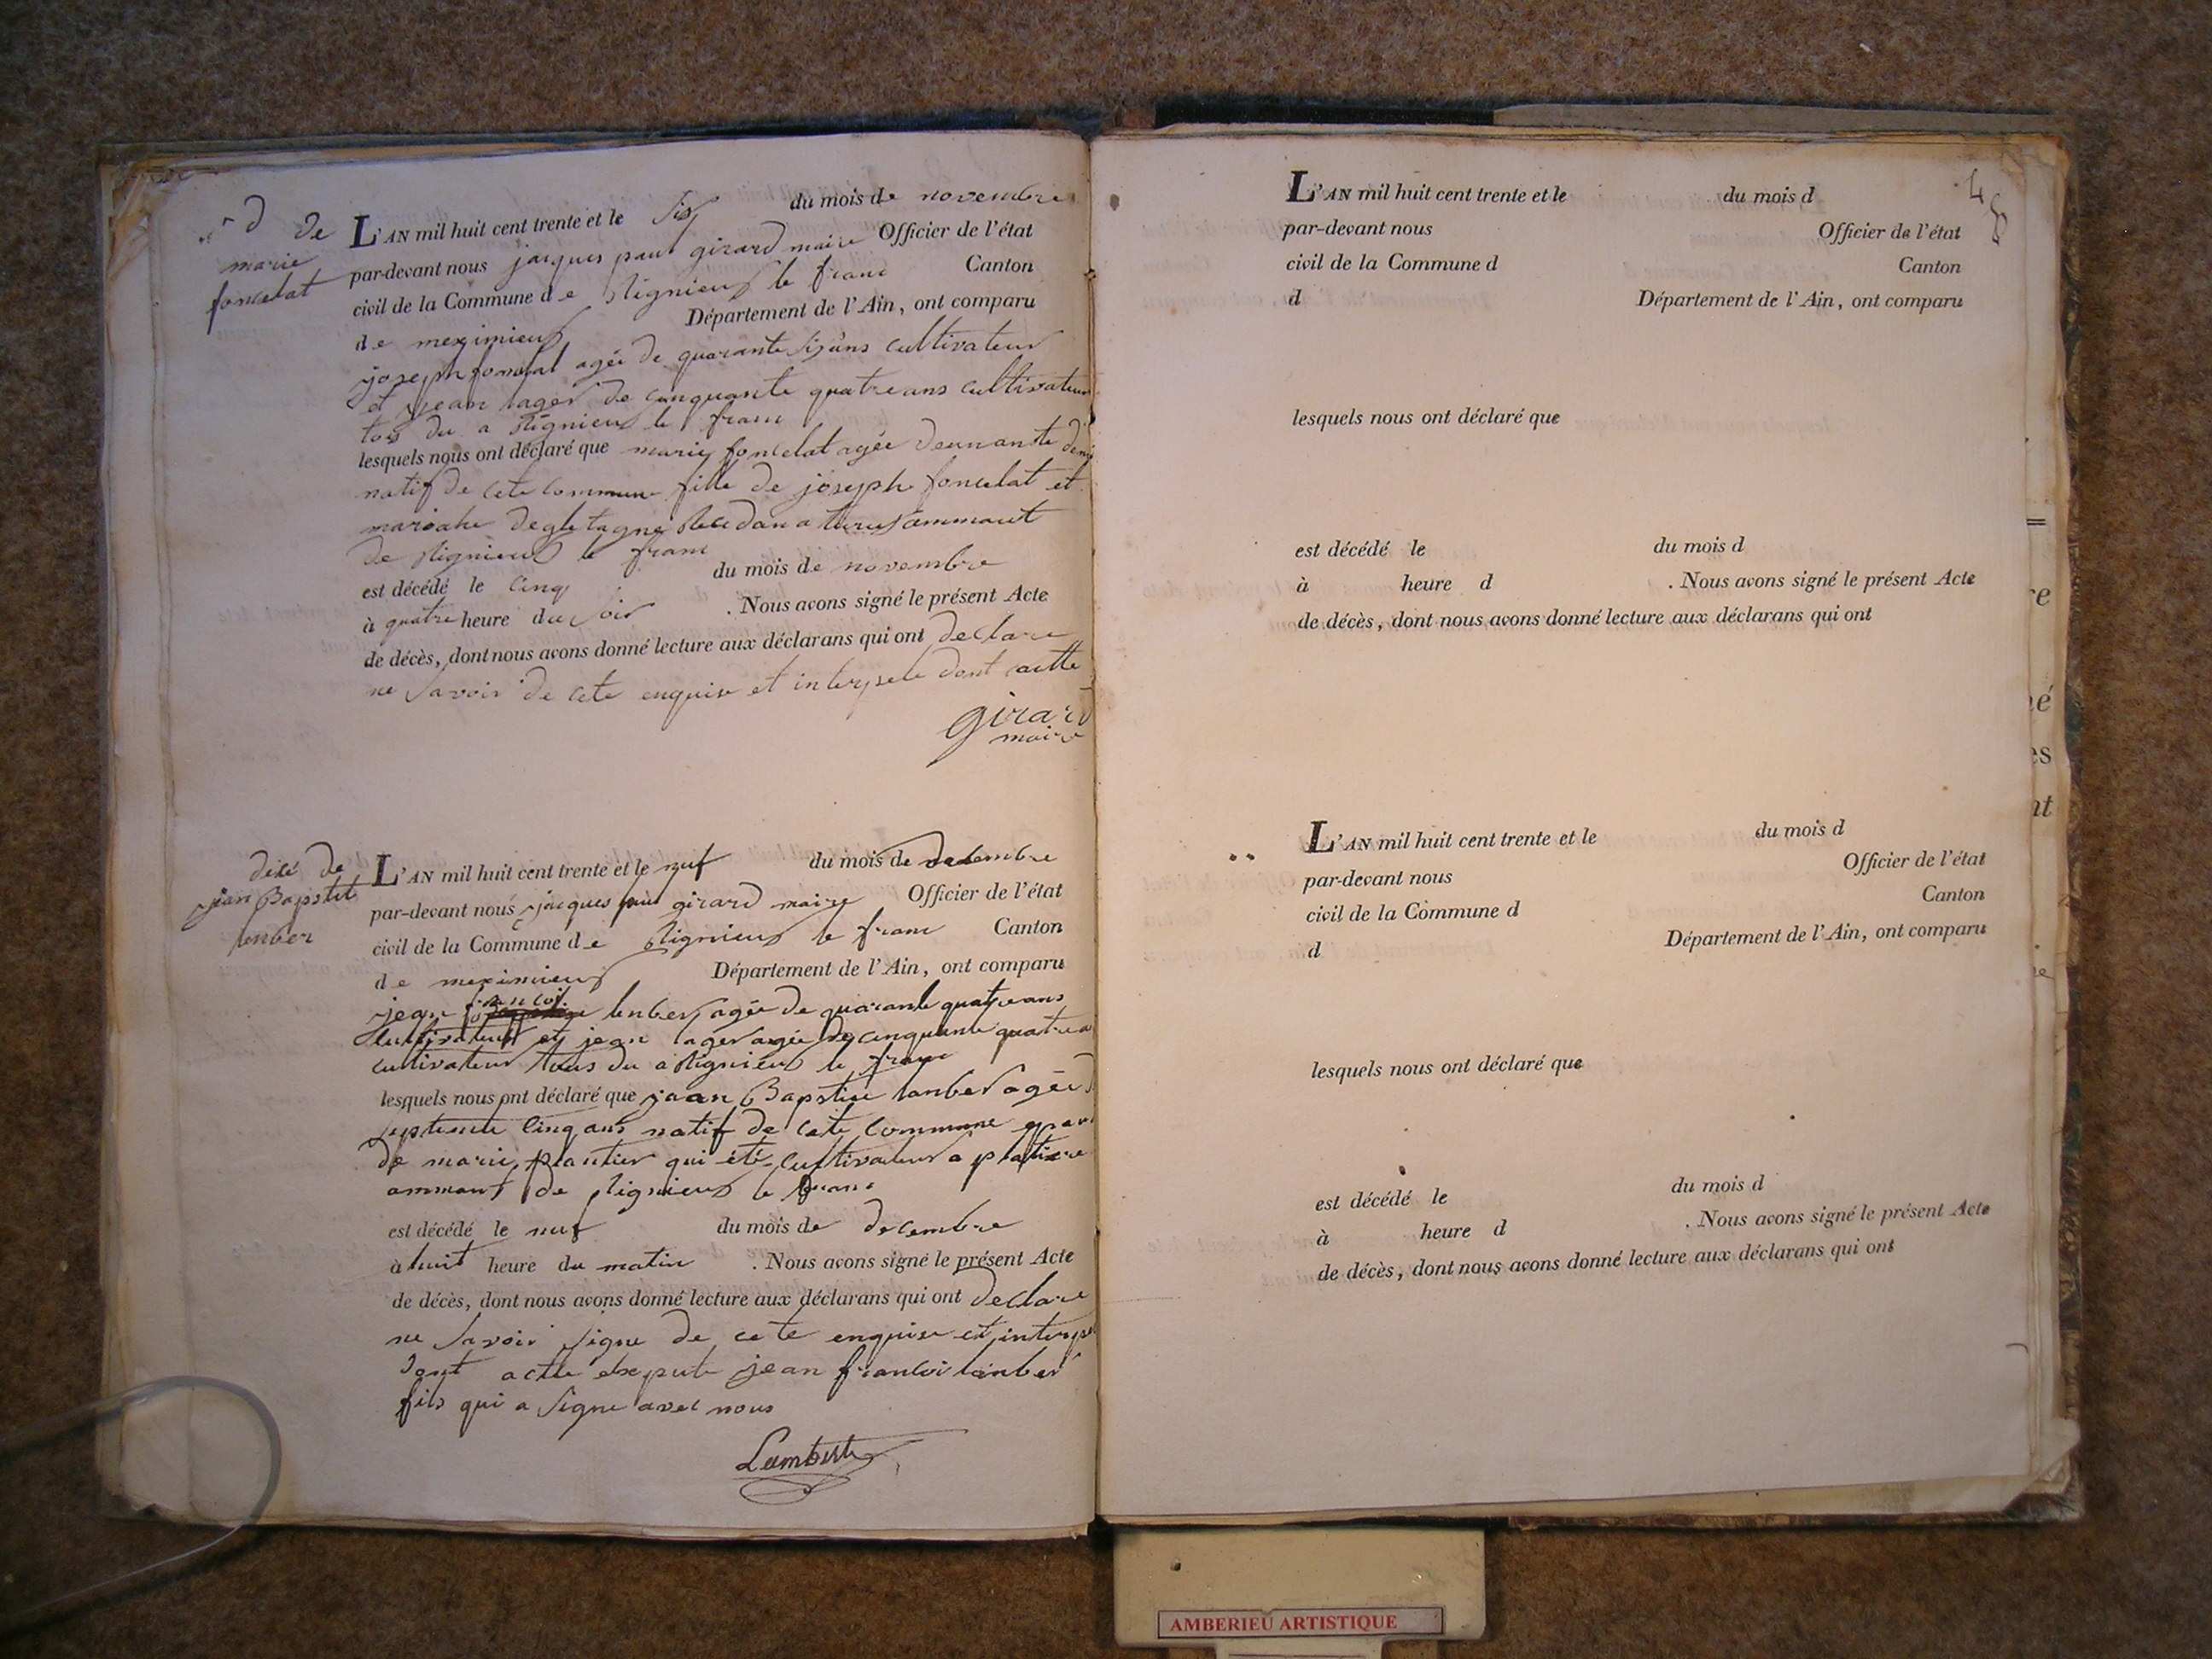 d de
marie
foncelat
L'AN mil huit cent trente et le six du mois de novembre
par-devant nous jacques paul girard maire Officier de l'état
civil de la Commune de rignieux le franc Canton
de meximieux Département de l'Ain, ont comparu
joseph foncelat agée de quarante six ans cultivateur
et jean lager de cinquante quatre ans cultivateur
tos du a rignieux le franc
lesquels nous ont déclaré que marie foncelat agée deun an et demi
natif de cete commune fille de joseph foncelat et
de rignieux le franc
est décédé le cinq du mois de novembre
à quatre heure du soir . Nous avons signé le présent Acte
de décès, dont nous avons donné lecture aux déclarans qui ont declare
ne savoir de cete enquise et interpele dont actte
girard
maire
dexé de
jean Bapstite
lenber
L'AN mil huit cent trente et le nuf du mois de decembre
par-devant nous jacques paul girard maire Officier de l'état
civil de la Commune de rignieux le franc Canton
de meximieux Département de l'Ain, ont comparu
jean francoi lenber agée de quarante quatre ans
cultivateur et jean lager agée de cinquante quatre
cultivateur tous du a rignieux le franc
lesquels nous ont déclaré que jean Bapstite lanber agée
septente cinq ans natif de cete commune
de marie plantier qui été cultivateur a platiere
ammant de rignieux le franc
est décédé le nuf du mois de decembre
à huit heure du matin . Nous avons signé le présent Acte
de décès, dont nous avons donné lecture aux déclarans qui ont declare
ne savoir signe de cete enquise et interpe
dont actte exepute jean francoi lanber
fils qui a signe avec nous
Lambert
48
L'AN mil huit cent trente et le du mois d
par-devant nous Officier de l'état
civil de la Commune d Canton
d Département de l'Ain, ont comparu
lesquels nous ont déclaré que
est décédé le du mois d
à heure d . Nous avons signé le présent Acte
de décès, dont nous avons donné lecture aux déclarans qui ont
L'AN mil huit cent trente et le du mois d
par-devant nous Officier de l'état
civil de la Commune d Canton
d Département de l'Ain, ont comparu
lesquels nous ont déclaré que
est décédé le du mois d
à heure d . Nous avons signé le présent Acte
de décès, dont nous avons donné lecture aux déclarans qui ont
AMBERIEU ARTISTIQUE